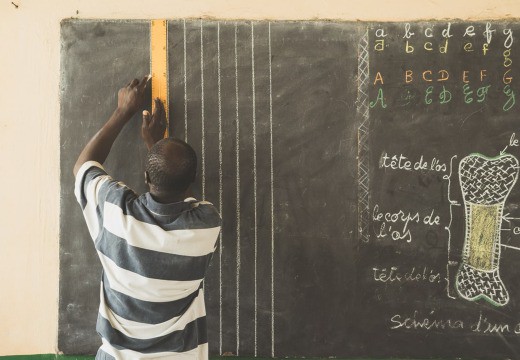 a b c d e f g
a b c d e f g
A B C D E F G
A B C D E F G
le
tête de l'os
le corps de
l'os
tête de l'os
Schéma d'un